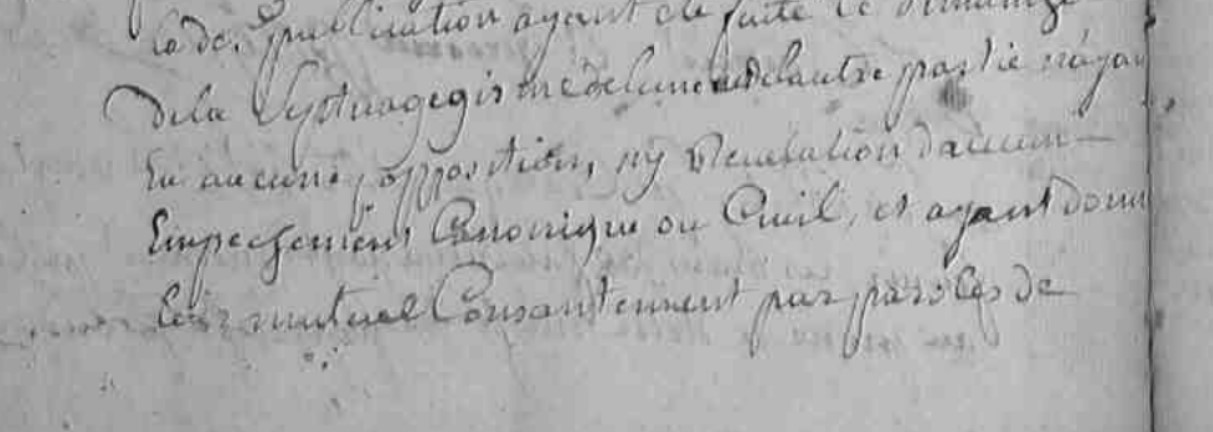 la de. publication ayant été faite le dimanche
de la Septuagegisme de lune et de lautre partie n'ayan
Eu aucune opposition, ny Revelation daucun
Empeschement Canonique ou Civil, et ayant donn
leur mutuel Consantement par parolles de